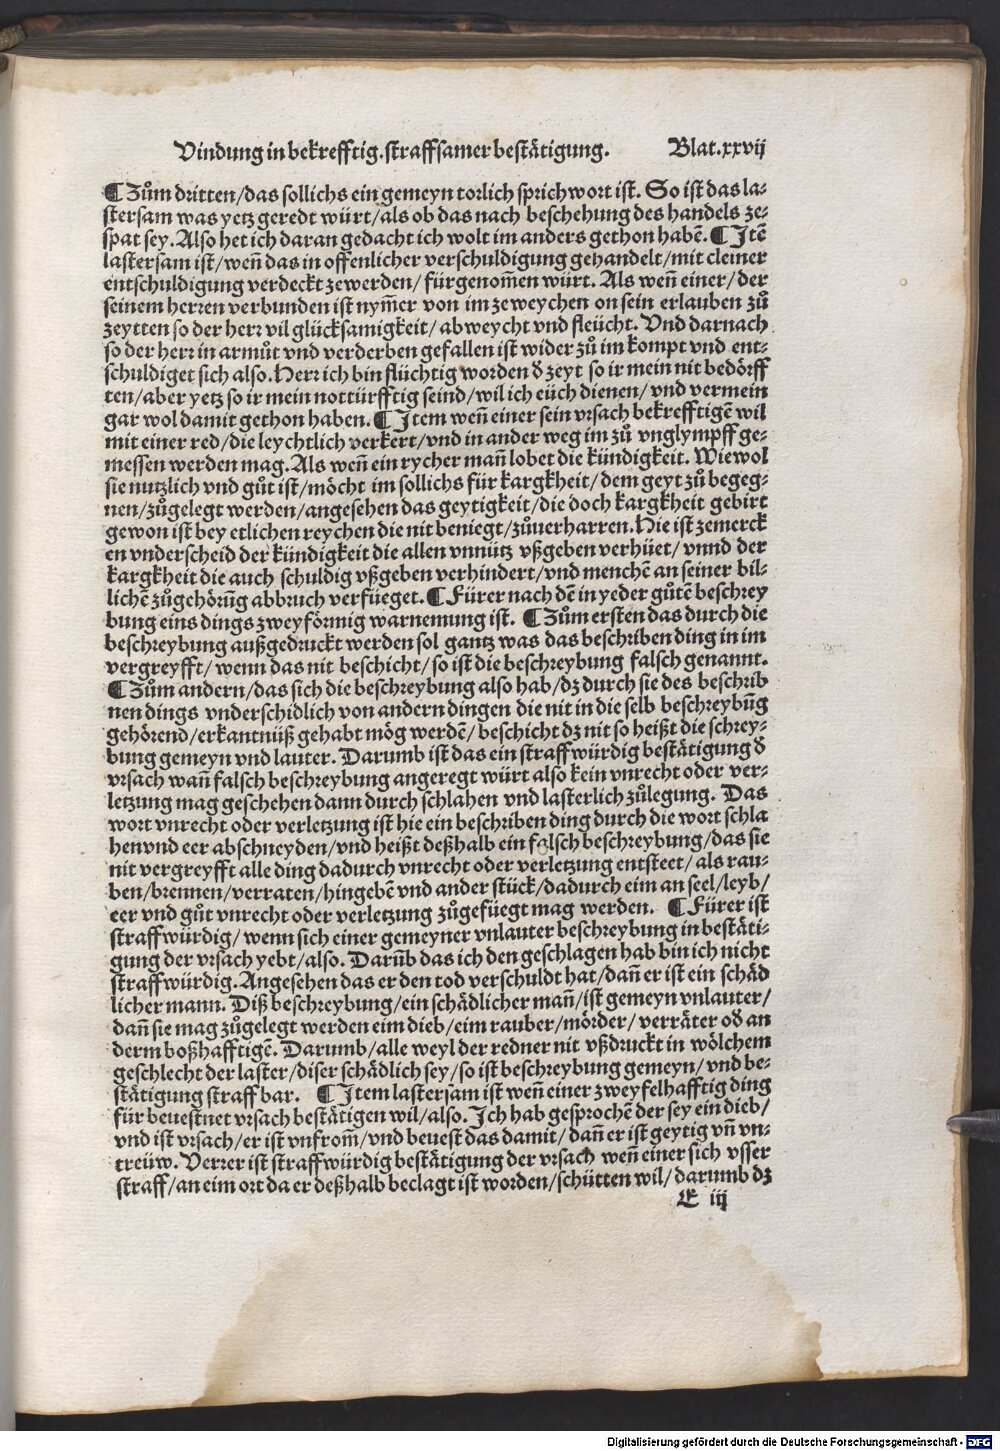 Vindung in bekrefftig. straffsamer bestätigung. Blat. xxvij
¶ Zům dritten/das sollichs ein gemeyn torlich sprichwort ist. So ist das la-
stersam was yetz geredt würt/als ob das nach beschehung des handels ze-
spat sey. Also het ich daran gedacht ich wolt im anders gethon habē. ¶ Itē
lastersam ist/weñ das in offenlicher verschuldigung gehandelt/mit cleiner
entschuldigung verdeckt zewerden/fürgenom̃en würt. Als weñ einer/der
seinem herren verbunden ist nym̃er von im zeweychen on sein erlauben zů
zeytten so der herr vil glücksamigkeit/abweycht vnd fleücht. Vnd darnach
so der herr in armůt vnd verderben gefallen ist wider zů im kompt vnd ent-
schuldiget sich also. Herr ich bin flüchtig worden d̕ zeyt so ir mein nit bedörff
ten/aber yetz so ir mein nottürfftig seind/wil ich eüch dienen/vnd vermein
gar wol damit gethon haben. ¶ Item weñ einer sein vrsach bekrefftigē wil
mit einer red/die leychtlich verkert/vnd in ander weg im zů vnglympff ge-
messen werden mag. Als weñ ein rycher mañ lobet die kündigkeit. Wiewol
sie nutzlich vnd gůt ist/möcht im sollichs für kargkheit/dem geyt zů begeg-
nen/zůgelegt werden/angesehen das geytigkeit/die doch kargkheit gebirt
gewon ist bey etlichen reychen die nit beniegt/zůuerharren. Hie ist zemerck
en vnderscheid der kündigkeit die allen vnnütz vßgeben verhüet/vnnd der
kargkheit die auch schuldig vßgeben verhindert/vnd menchē an seiner bil-
lichē zůgehörũg abbruch verfüeget. ¶ Fürer nach dē in yeder gůtē beschrey
bung eins dings zweyförmig warnemung ist. ¶ Zům ersten das durch die
beschreybung außgedruckt werden sol gantz was das beschriben ding in im
vergreyfft/wenn das nit beschicht/so ist die beschreybung falsch genannt.
¶ Zům andern/das sich die beschreybung also hab/dz durch sie des beschrib
nen dings vnderschidlich von andern dingen die nit in die selb beschreybũg
gehörend/erkantnüß gehabt mög werdē/beschicht dz nit so heißt die schrey-
bung gemeyn vnd lauter. Darumb ist das ein straffwürdig bestätigung d̕
vrsach wañ falsch beschreybung angeregt würt also kein vnrecht oder ver-
letzung mag geschehen dann durch schlahen vnd lasterlich zůlegung. Das
wort vnrecht oder verletzung ist hie ein beschriben ding durch die wort schla
hen vnd eer abschneyden/vnd heißt deßhalb ein falsch beschreybung/das sie
nit vergreyfft alle ding dadurch vnrecht oder verletzung entsteet/als rau-
ben/brennen/verraten/hingebē vnd ander stück/dadurch eim an seel/leyb/
eer vnd gůt vnrecht oder verletzung zůgefüegt mag werden. ¶ Fürer ist
straffwürdig/wenn sich einer gemeyner vnlauter beschreybung in bestäti-
gung der vrsach yebt/also. Darũb das ich den geschlagen hab bin ich nicht
straffwürdig. Angesehen das er den tod verschuldt hat/dañ er ist ein schäd
licher mann. Diß beschreybung/ein schädlicher mañ/ist gemeyn vnlauter/
dañ sie mag zůgelegt werden eim dieb/eim rauber/mörder/verräter od̕ an
derm boßhafftigē. Darumb/alle weyl der redner nit vßdruckt in wölchem
geschlecht der laster/diser schädlich sey/so ist beschreybung gemeyn/vnd be-
stätigung straffbar. ¶ Item lastersam ist weñ einer zweyfelhafftig ding
für beuestnet vrsach bestätigen wil/also. Ich hab gesprochē der sey ein dieb/
vnd ist vrsach/er ist vnfrom̃/vnd beuest das damit/dañ er ist geytig vñ vn-
treüw. Verrer ist straffwürdig bestätigung der vrsach weñ einer sich vsser
straff/an eim ort da er deßhalb beclagt ist worden/schütten wil/darumb dz
E iij
Digitalisierung gefördert durch die Deutsche Forschungsgemeinschaft - DFG